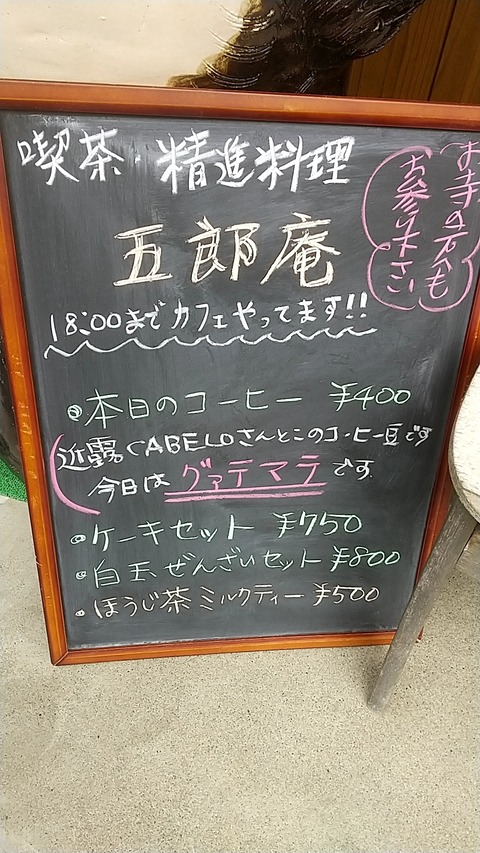 喫茶・精進料理
お寺の方も
お参り下さい
五郎庵
18:00までカフェやってます!!
本日のコーヒー ¥400
近露CABELOさんとこのコーヒー豆です
今日はグァテマラです
ケーキセット ¥750
白玉ぜんざいセット ¥800
ほうじ茶ミルクティー ¥500